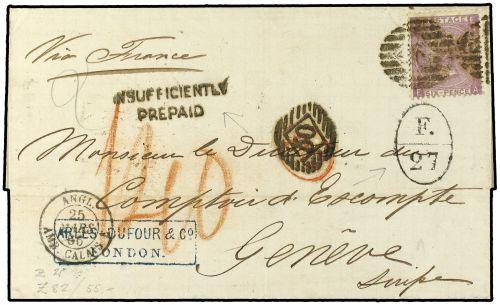 Via France
POSTAGE
SIX PENCE
INSUFFICIENTLY
PREPAID
F.
27
Monsieur le Directeur du
Comptoir d'Escompte
Genève
Suisse
1/40
ANGL.
25
AMB. CALAIS
ARLES-DUFOUR & Co
LONDON.